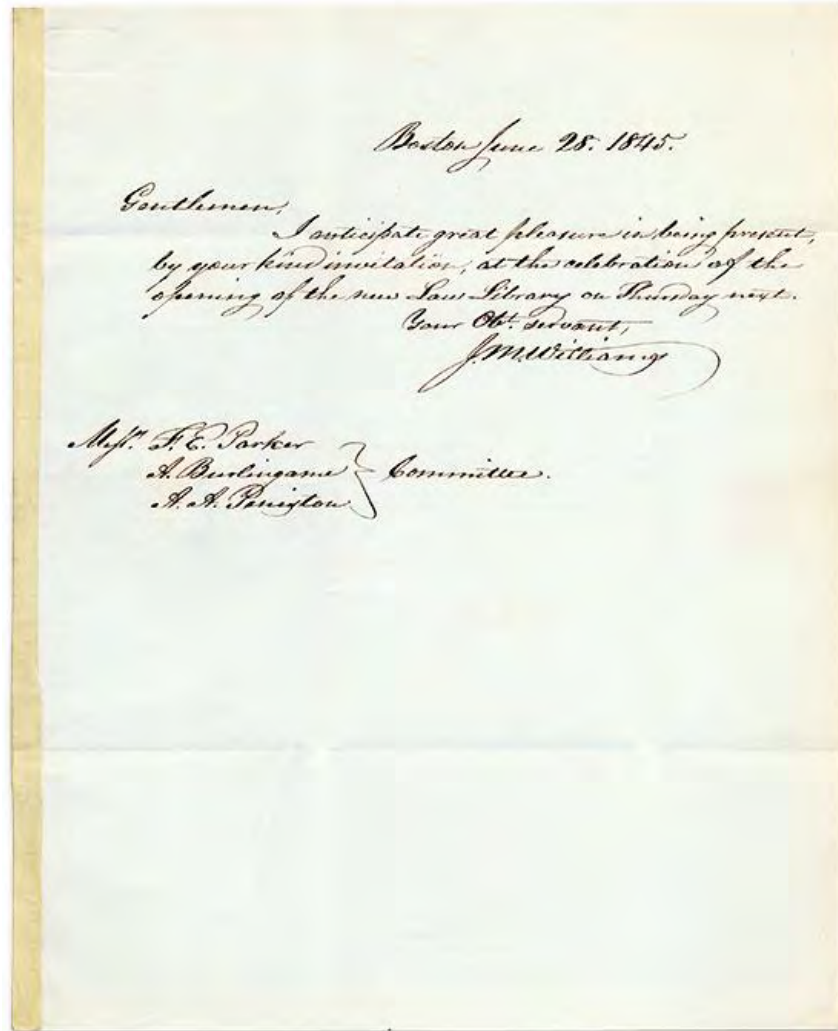 Boston June 28. 1845.
Gentlemen,
I anticipate great pleasure in being present,
by your kind invitation, at the celebration of the
opening of the new Law Library on Thursday next.
Your Obt. servant,
J. M. Williams
Messrs. F. E. Parker
A. Burlingame } Committee.
A. A. Penixton